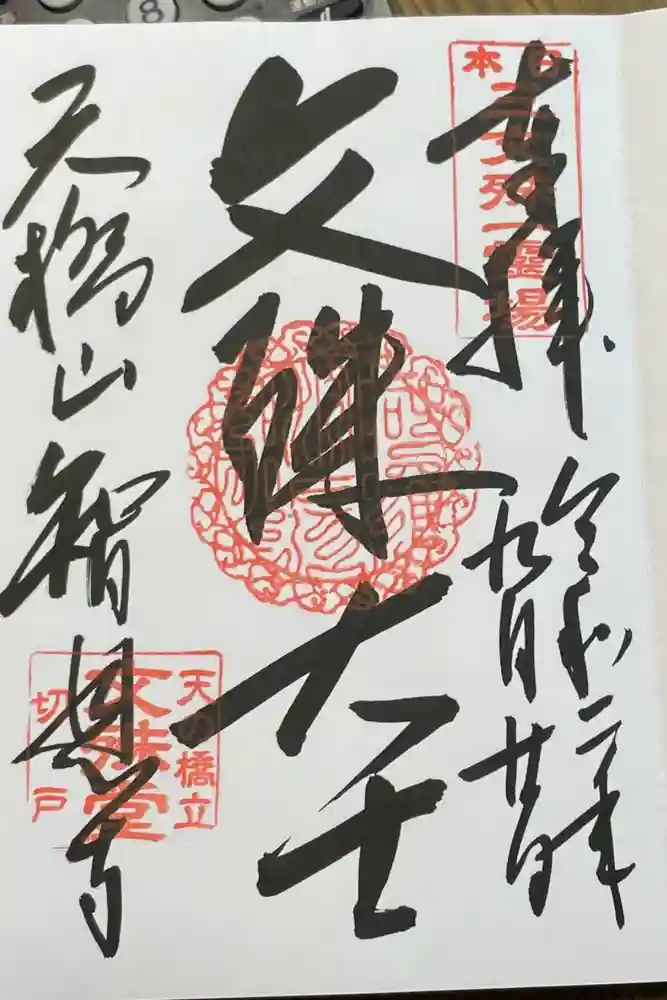 奉拝
日本
三文殊一霊場
令和二年
九月廿日
文殊大士
天橋山智恩寺
天の橋立
文殊堂
切戸
8